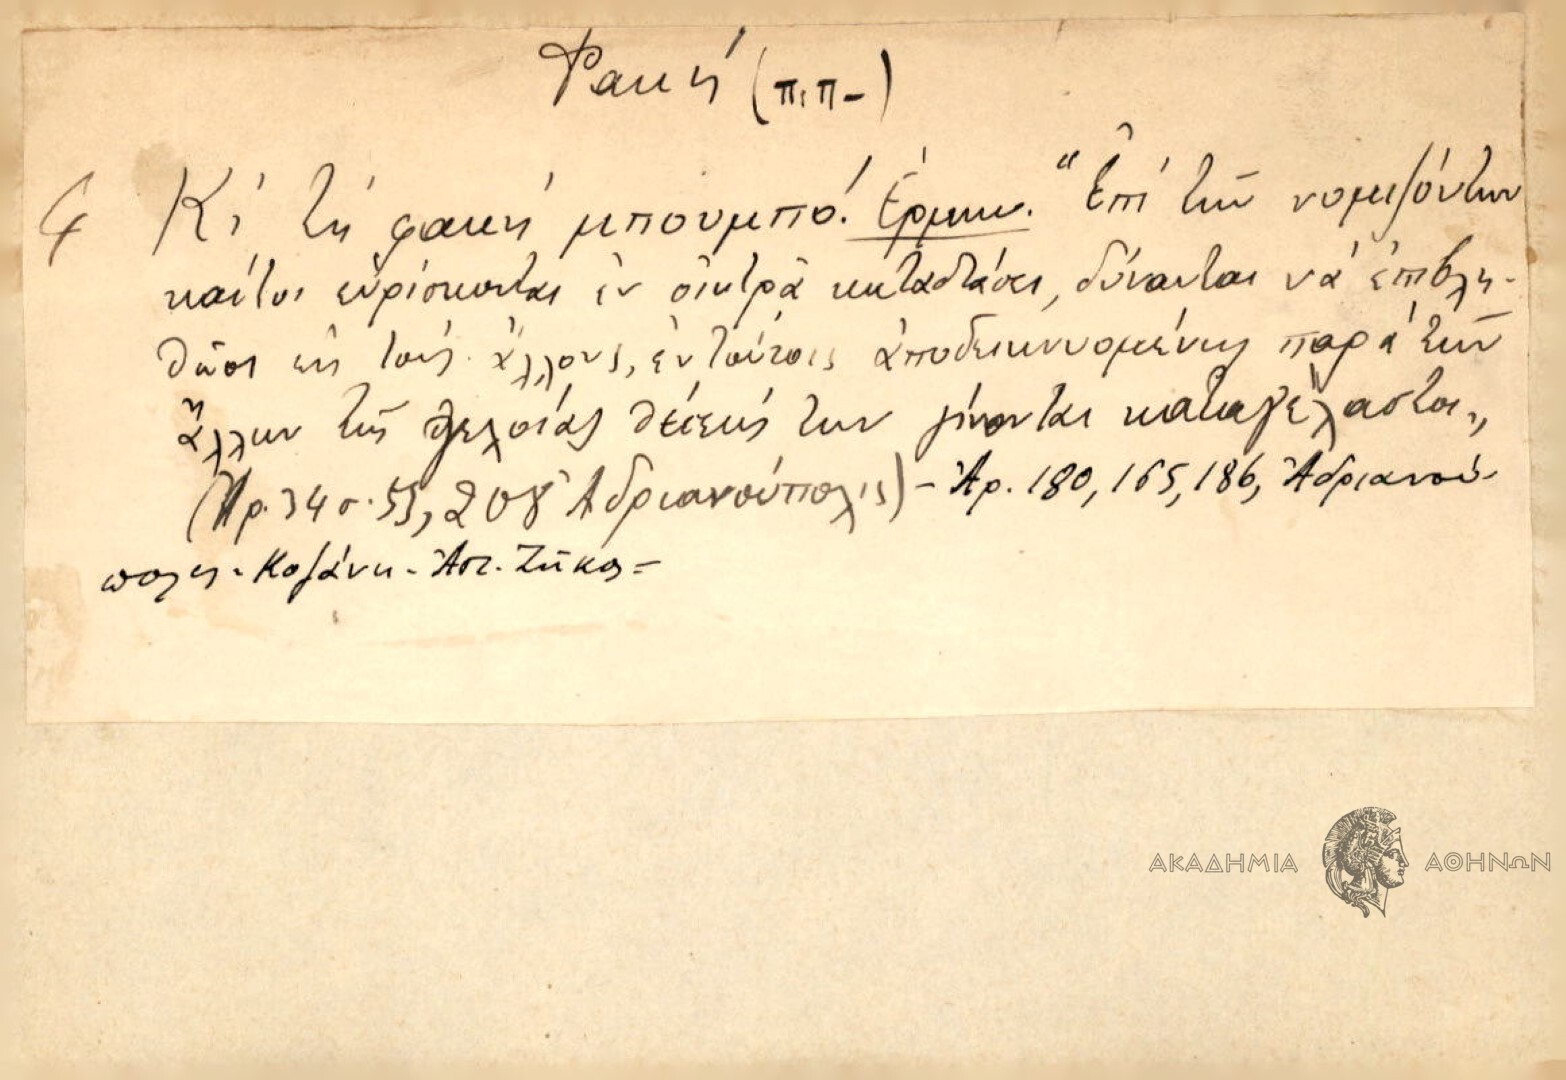 Φακή (π.π-)
4 Κὶ τὴ φακὴ μπουμπό! Ἑρμην. "Ἐπὶ τῶν νομιζόντων
καίτοι εὑρίσκονται ἐν οἰκτρᾷ καταστάσει, δύνανται νὰ ἐπιβλη-
θῶσι εἰς τοὺς ἄλλους, ἐν τούτοις ἀποδεικνυομένης παρὰ τῶν
ἄλλων τῆς γελοίας θέσεώς των γίνονται καταγέλαστοι„
(Ἀρ. 34 σ. 55, 208 Ἀδριανούπολις) - Ἀρ. 180, 165, 186, Ἀδριανού-
πολις - Κοζάνη - Ἀστ. Ζήκος =
ΑΚΑΔΗΜΙΑ ΑΘΗΝΩΝ